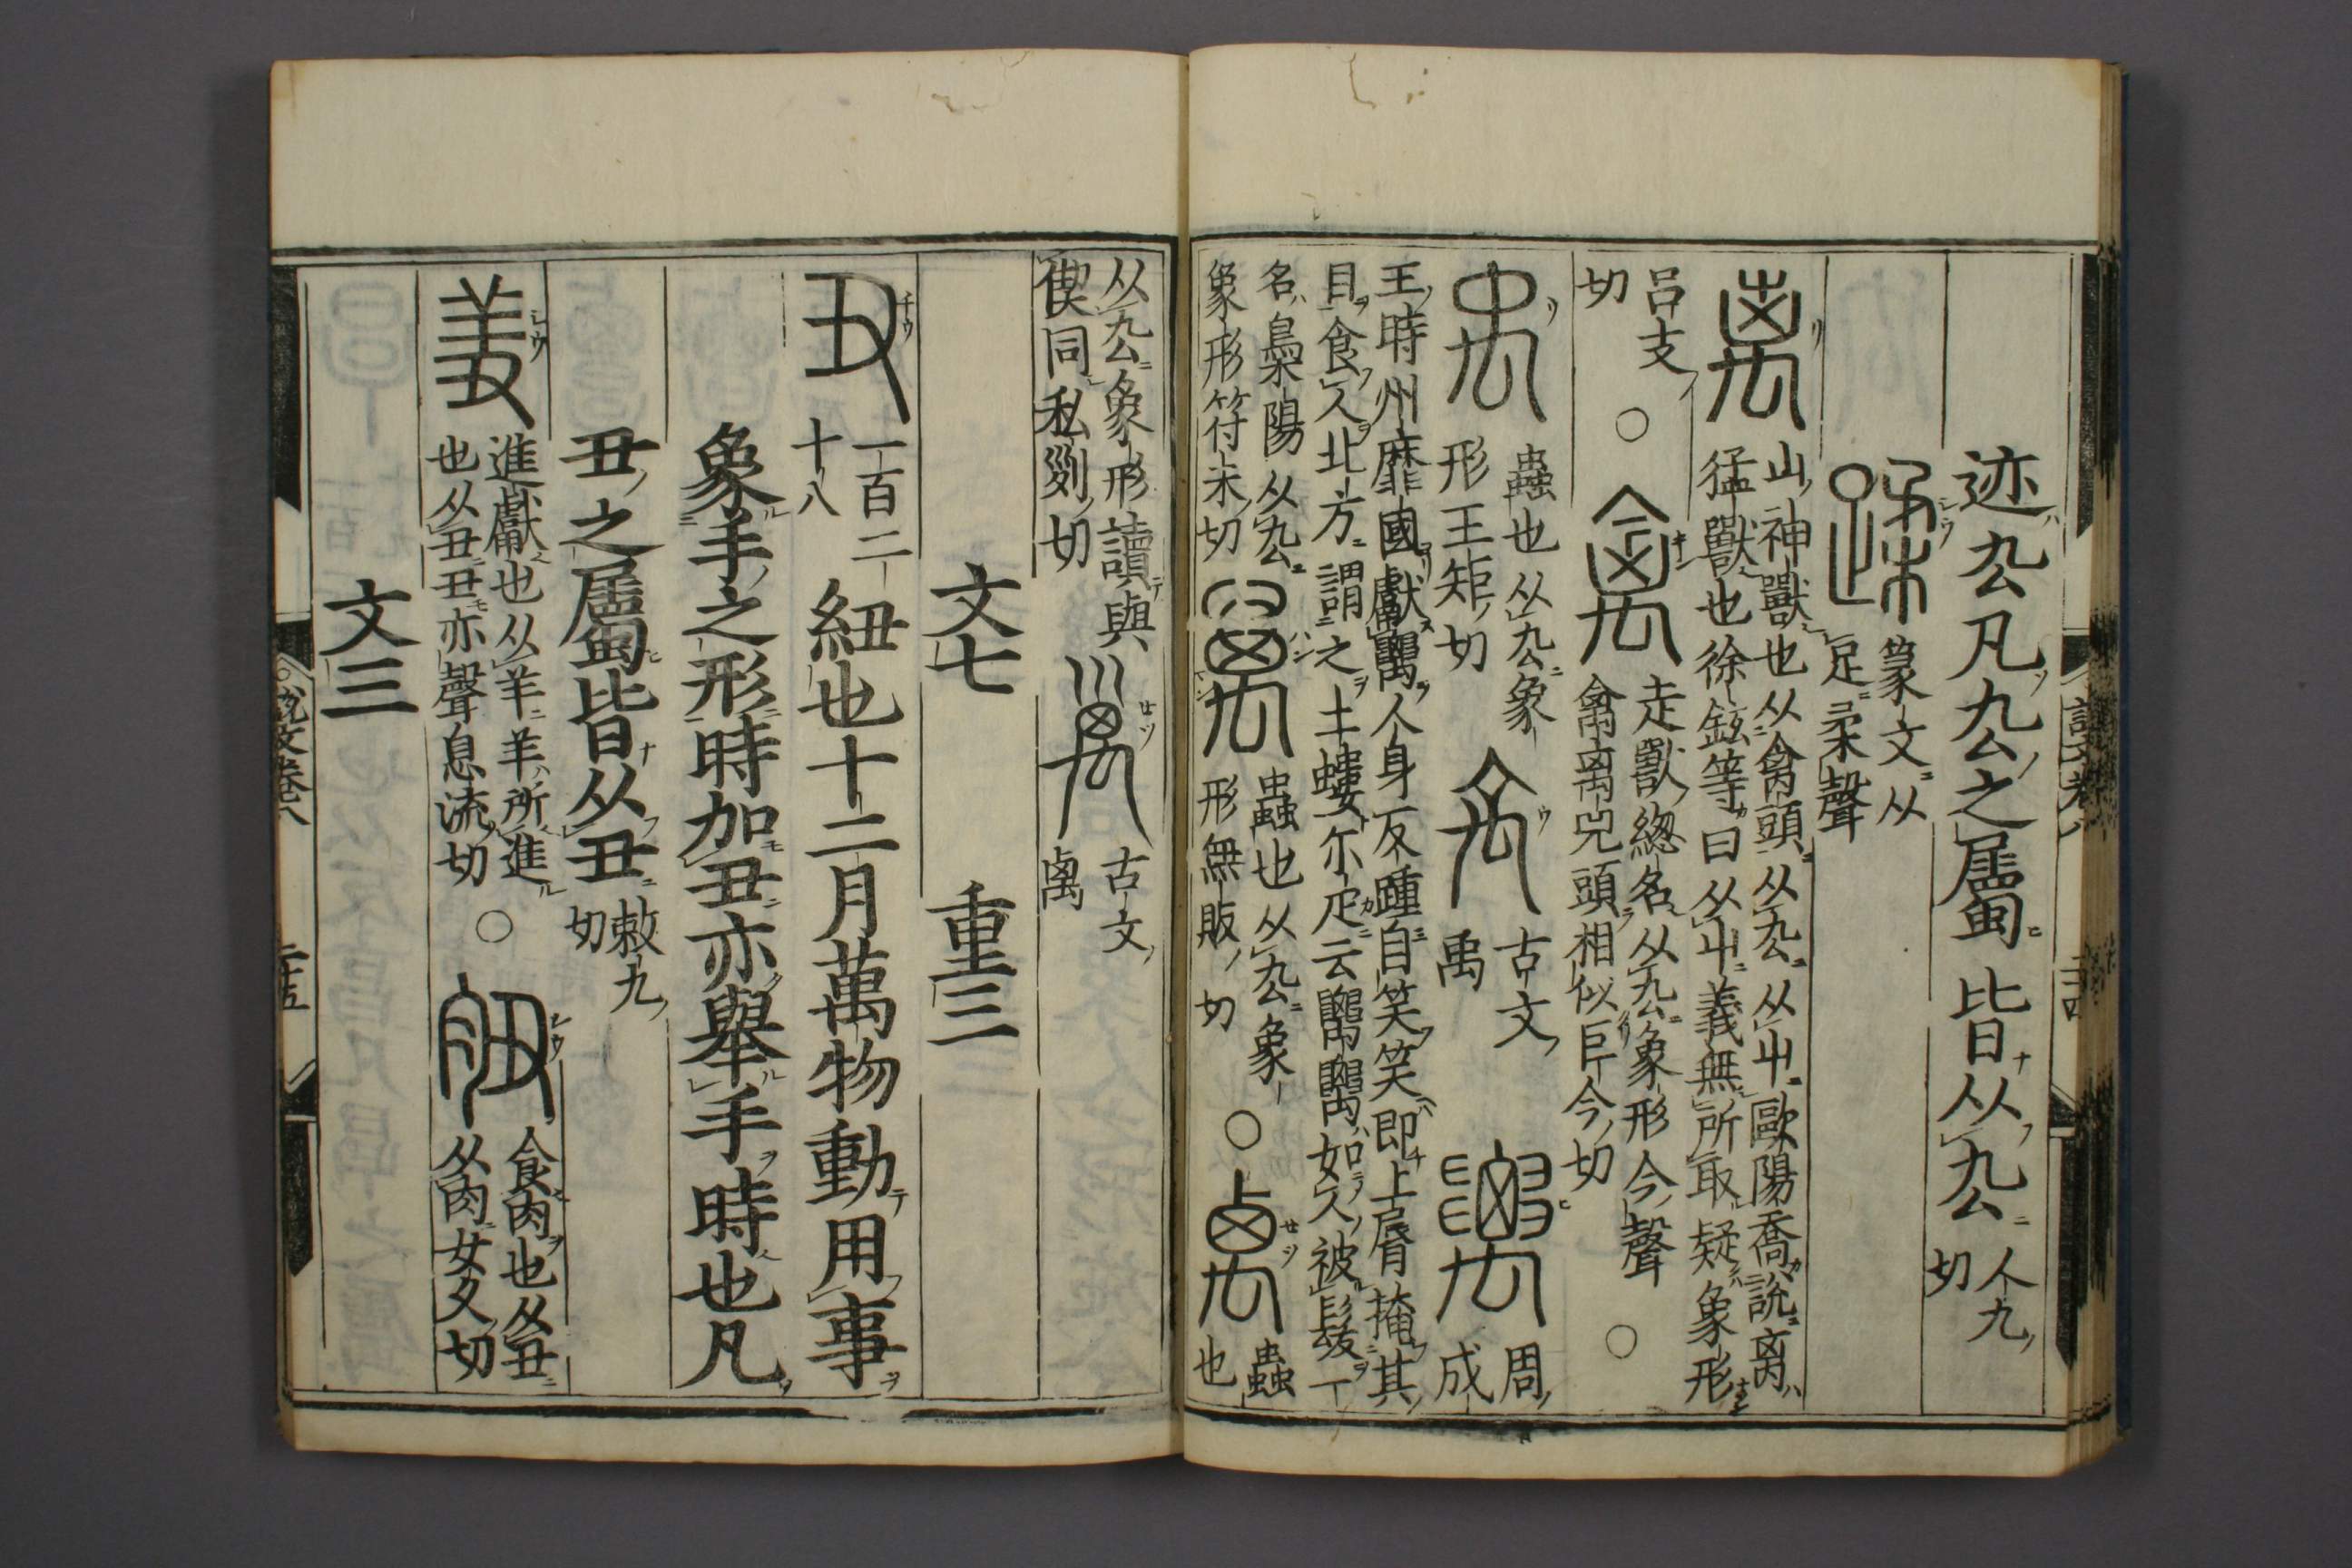 迹厹凡厹之屬皆从厹人九切
篆文从足柔聲
山神獸也从禽頭从厹从屮歐陽喬說离
猛獸也徐鉉等曰从屮義無所取疑象形
呂支切
○
走獸總名从厹象形今聲
禽离兕頭相似巨今切
○
蟲也从厹象
形王矩切
古文禹
周成
王時州靡國獻𥜿人身反踵自笑笑即上脣掩其
目食人北方謂之土螻尒疋云𥜿𥜿如人被髮一
名梟陽从厹
象形符未切
蟲也从厹象
形無販切
○
蟲也
从厹象形讀與
偰同私列切
古文
禼
文七 重三
一百二十八
紐也十二月萬物動用事
象手之形時加丑亦舉手時也凡
丑之屬皆从丑敕九切
進獻也从羊羊所進
也从丑丑亦聲息流切
○
食肉也从丑
从肉女久切
文三
說文卷八 二十五
說文卷八 二十四